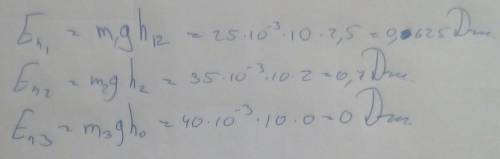 Eп₁ = m₁gh₁₂ = 25·10⁻³·10·2,5 = 0,0625 Dж
Eп₂ = m₂gh₂ = 35·10⁻³·10·2 = 0,7 Dж
Eп₃ = m₃gh₀ = 40·10⁻³·10·0 = 0 Dж